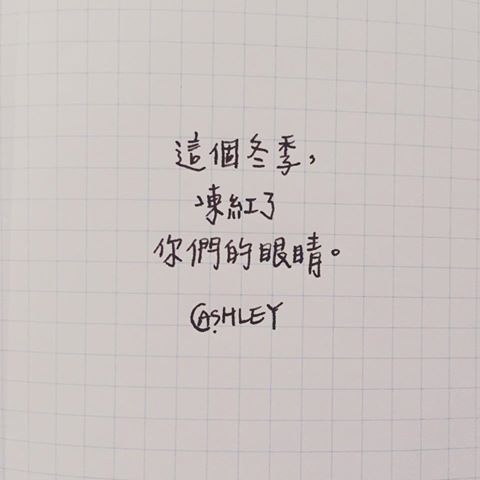 這個冬季，
凍紅了
你們的眼睛。
@ASHLEY